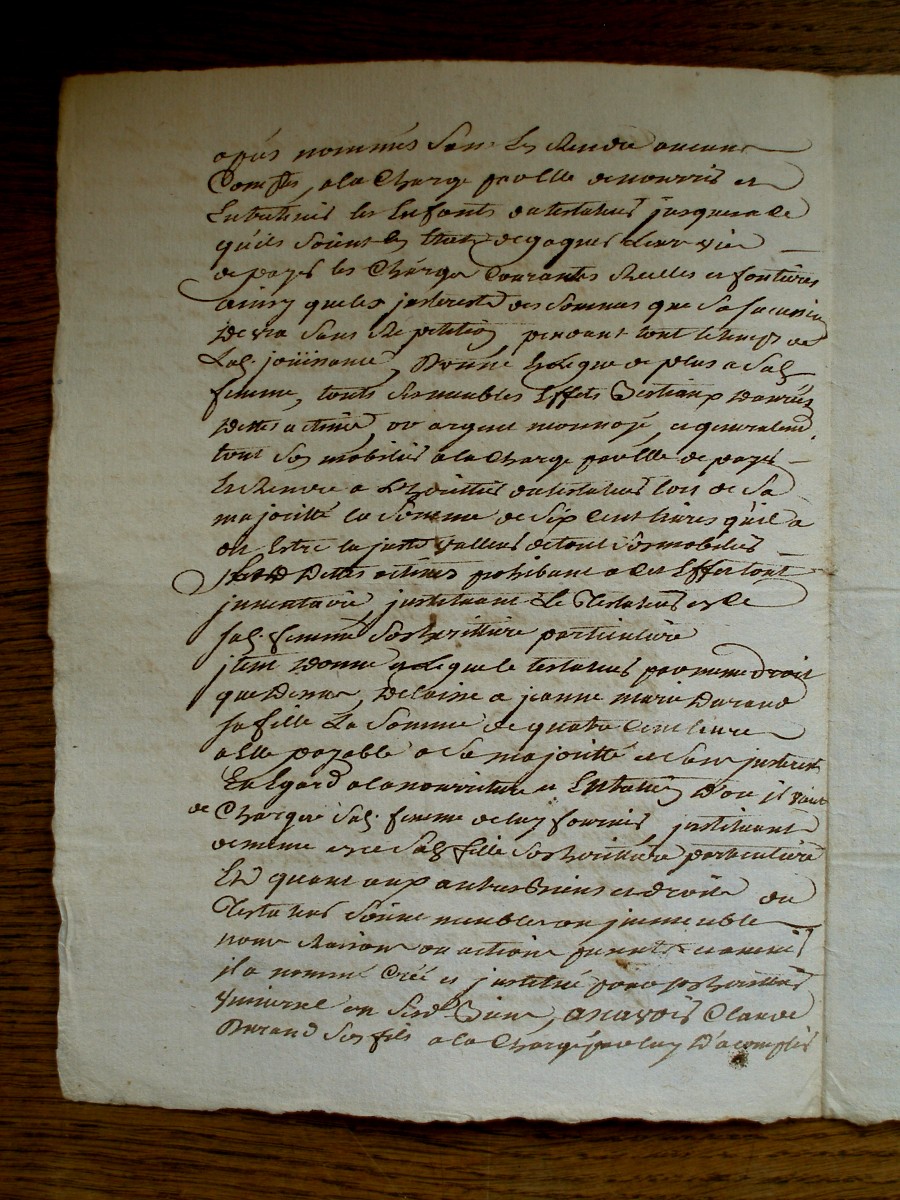 apres nommés sans Les Rendre aucune
Comptes, ala Charge par elle denourrir et
Entretenir les Enfants dutestateur jusquesace
qu'ils soient En Etat degagner Leur vie
de payer les Charges Courantes Reelles et fontieres
ainsy queles jnterests des sommes que sasucession
Devra sans Repetition pendant tout letemps de
Lad. joüissance, Donne et Legue de plus a sad.
femme, touts sesmeubles Effets Bestiaux Danrées
Dettes actives, ou argent monnoyé, et generalem.t
tout son mobilier ala Charge par Elle de payer
Et Rendre a Lheritier dutestateur lors de sa
majoritté la somme de six Cent livres qu'il a
dit Estre lajuste valleur detout sonmobilier
et Dettes actives prohibant a Cet Effet tout
jnventaire, jnstituant Le Testateur en Ce
sad. femme sonherittiere particuliere
jtem Donne et Legue le testateur parmeme droit
que Dessus, Delaisse a jeanne marie Durand
sa fille La somme de quatre Cent livres
a Elle payable a sa majoritté et sans jnterest
Eu Egard alanourriture et Entretien D'ou il vient
de Charger sad. femme deluy fournir, jnstituant
dememe en ce sad. fille sonherittiere particuliere
Et quant aux autres Biens et droits du
Testateur soient meubles ou jmmeubles
noms Raisons ou actions presents et avenir
jl a nommé Créé et jnstitué pour son herittier
Vniversel en sesd. Biens, ascavoir Claude
Durand son fils ala Charge par luy D'acomplir